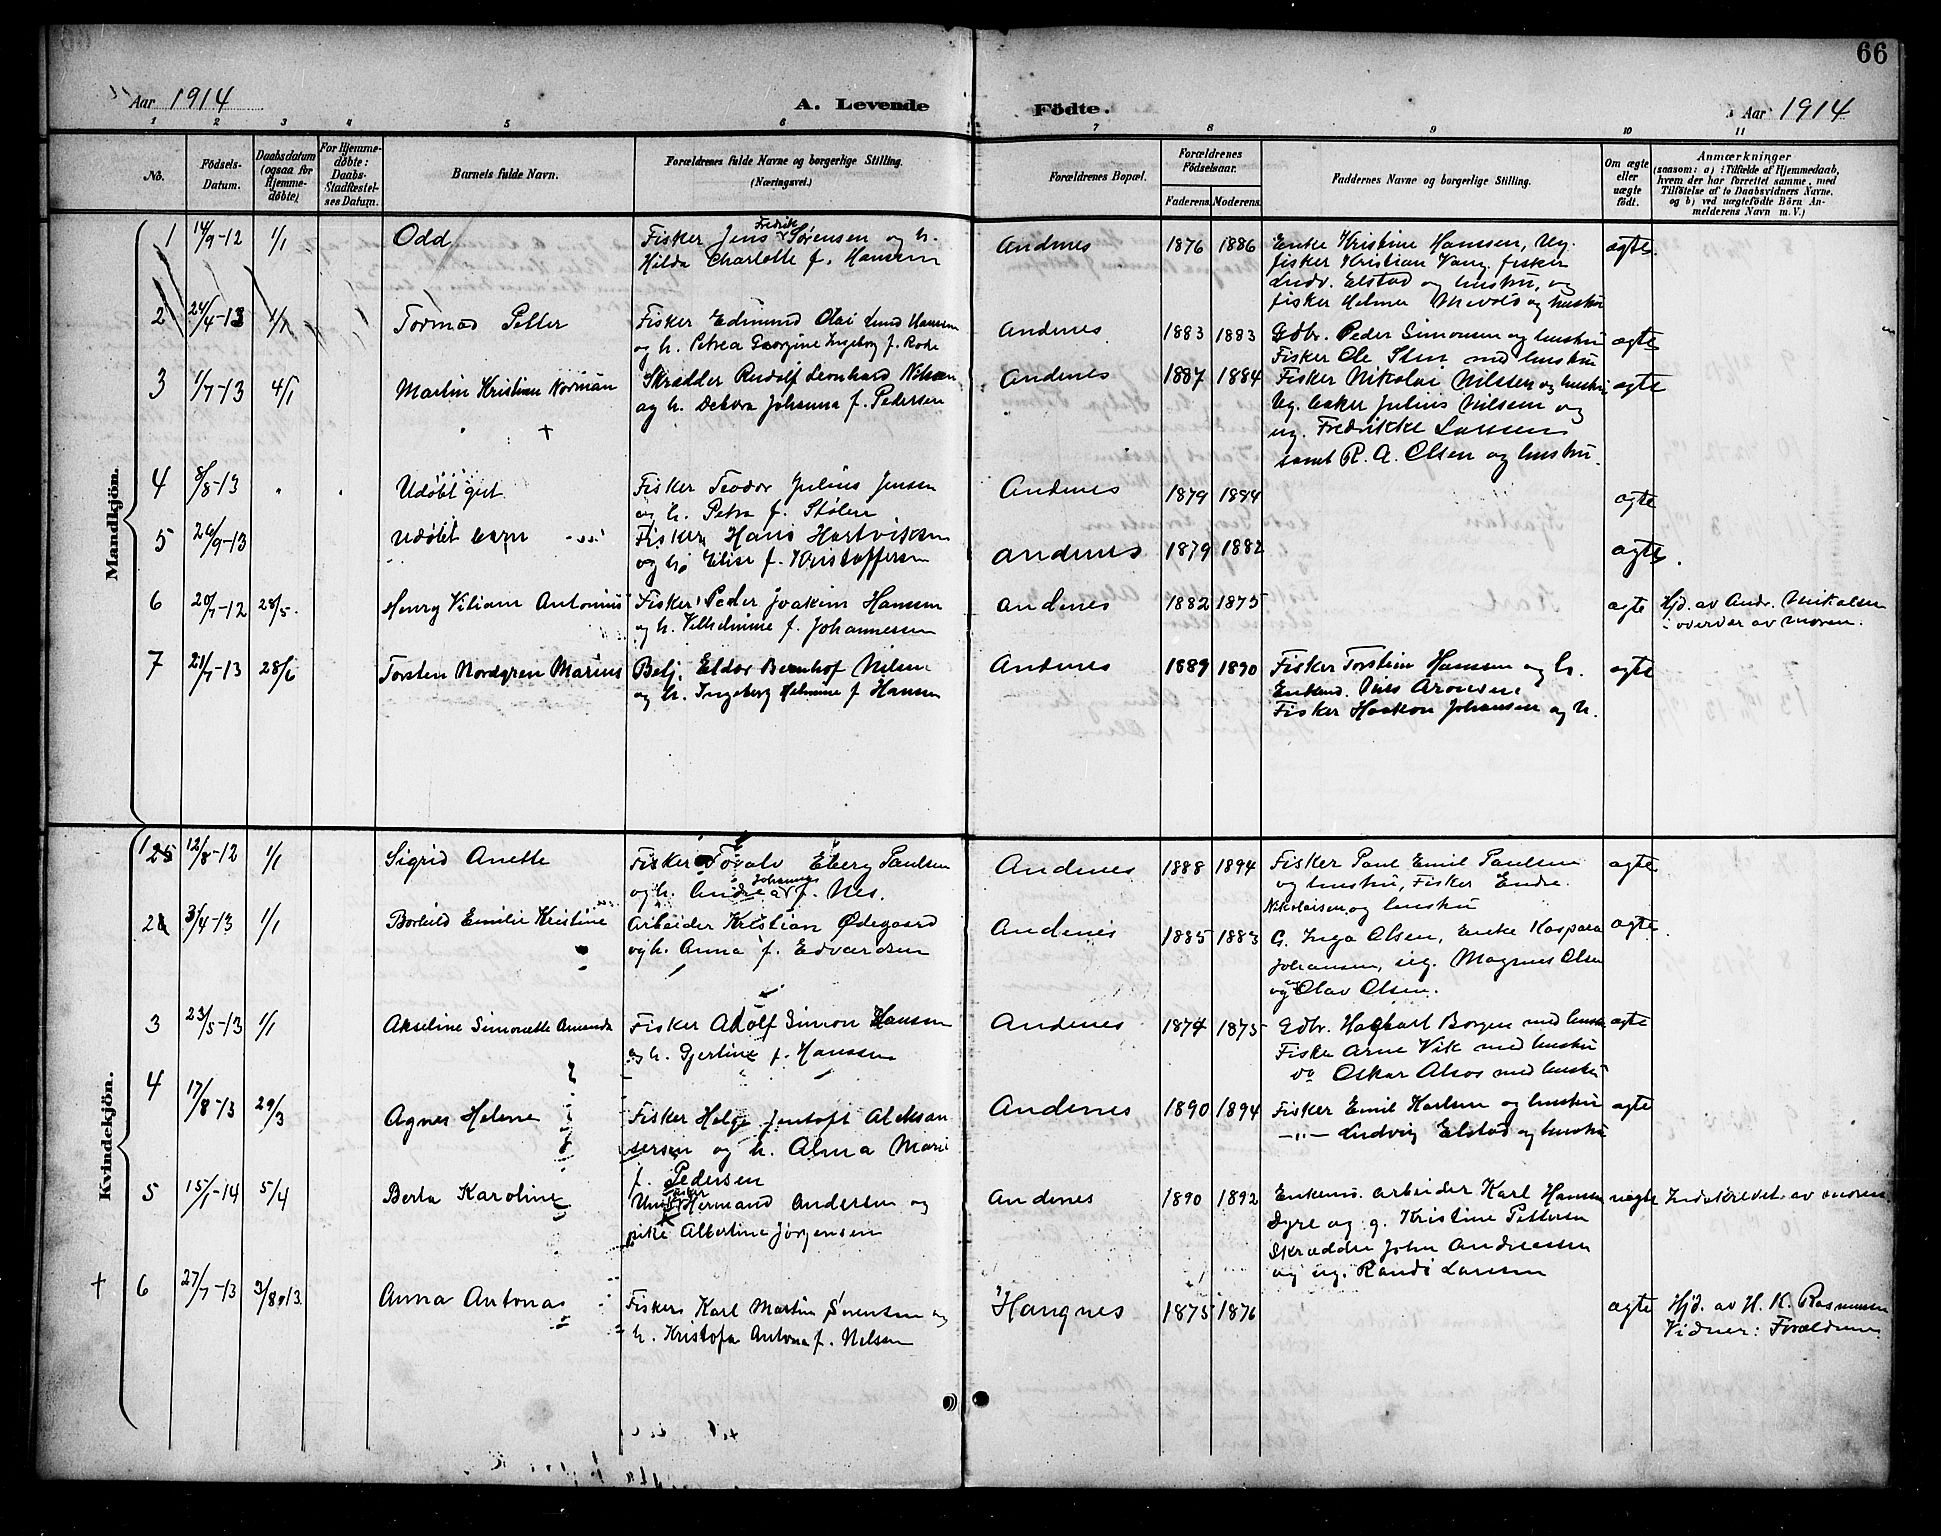 66
Aar 1914
A. Levende
Födte.
Aar 1914
1 2 3 4 5 6 7 8 9 10 11
No.
Födsels-
Datum.
Daabsdatum
(ogsaa for
Hjemme-
døbte)
For Hjemme-
døbte:
Daabs-
Stadfæstel-
ses Datum.
Barnets fulde Navn.
Forældrenes fulde Navne og borgerlige Stilling.
(Næringsvei.)
Forældrenes Bopæl.
Forældrenes
Födselsaar.
Faderens. Moderens.
Faddernes Navne og borgerlige Stilling.
Om ægte
eller
uægte
født.
Anmærkninger
(saasom: a) i Tilfælde af Hjemmedaab,
hvem der har forrettet samme, med
Tilföielse af to Daabsvidners Navne,
og b) ved uægtefödte Börn An-
melderens Navn m. V.)
Mandkjön.
1 14/9-12 1/1 Odd
Fisker Jens Fredrik Sørensen og h.
Hilda Charlotte f. Hansen
Andnes 1876 1886
Enke Kristine Hansen, Ug.
fisker Kristian Vang. fisker
Ludv. Elstad og hustru, og
fisker Helmer og hustru
ægte
2 24/4-13 1/1 Tormod Petter
Fisker Edmund Olai Lund Hansen
og h. Petrea Georgine Ingeborg f. Rode
Andnes 1883 1883
Gdbr. Peder Simonsen og hustru
Fisker Ole Sten med hustru
ægte
3 1/7-13 4/1 Martin Kristian Norman
+
Skrædder Rudolf Leonhard Nilsen
og h. Debora Johanna f. Pedersen
Andnes 1887 1884
Fisker Nikolai Nilssen og hustru
Ug. baker Julius Nilsen og
ug. Fredrikke Larssen
samt R. A. Olsen og hustru.
ægte
4 8/8-13 Udöbt gut
Fisker Teodor Julius Jensen
og h. Petra f. Stölen
Andenes 1879 1884
ægte
5 26/9-13 Udöbt barn
Fisker Hans Hartviksen
og h. Elise f. Kristoffersen
Andenes 1879 1882
ægte
6 20/7-12 28/5. Henry Viliam Antonius
Fisker Peder Joakim Hansen
og h. Vilhelmine f. Johannessen
Andenes 1882 1875
ægte
Hjd. av Andr. Mikalsen
i overvær av moren.
7 21/7-13 28/6 Torsten Nordgren Marius
Betj. Eldor Bernhof Nilsen
og h. Ingeborg Helmine f Hansen
Andnes 1889 1890
Fisker Torstein Hanssen og h.
Enkem. Nils Aronsen,
Fisker Haakon Johansen og h.
ægte
Kvindekjön.
1 12/8-12 1/1 Sigrid Anette
Fisker Toralv Eberg Paulsen
og h. Andrea Johannes f. Nes.
Andnes 1888 1894
Fisker Paul Emil Paulsen
og hustru, Fisker Endre
Nikolaisen og hustru
ægte
2 3/4-13 1/1 Borhild Emilie Kristine
Arbeider Kristian Ødegaard
og h. Anna f. Edvardsen
Andenes 1885 1883
G. Inga Olsen, Enke Kaspara
Johansen, ug. Magnus Olsen
og Olav Olsen.
ægte
3 23/5-13 1/1 Akseline Simonette Amanda
Fisker Adolf Simon Hansen
og h. Gjertine f. Hanssen
Andenes 1874 1875
Gdbr. Hagbart Borgen med hustr
Fiske Arne Vik med hustru
do Oskar Alsos med hustru
ægte
4 17/8-13 29/3 Agnes Helene
Fisker Helge Jentoft Aleksan-
dersen og h. Alma Marie
f. Pedersen
Andenes 1890 1894
Fisker Emil Karlsen og hustru
—"— Ludvig Elstad og hustru
ægte
5 15/1-14 5/4 Berta Karoline
Hermand Andersen og
pike Albertine Jørgensen
Andenes 1890 1892
Enkem. arbeider Karl Hansen
Dyre og g. Kristine Pettersen
Skrædder John Andreassen
og ug. Randi Larssen
uægte
Indskrevet av moren
+ 6 27/7-13 3/8 13. Anna Antona
Fisker Karl Martin Sørensen og
h. Kristofa Antona f. Nilsen
Haugnes 1875 1876
ægte
Hjd. av H. K. Rasmussen
Vidner: Forældrene